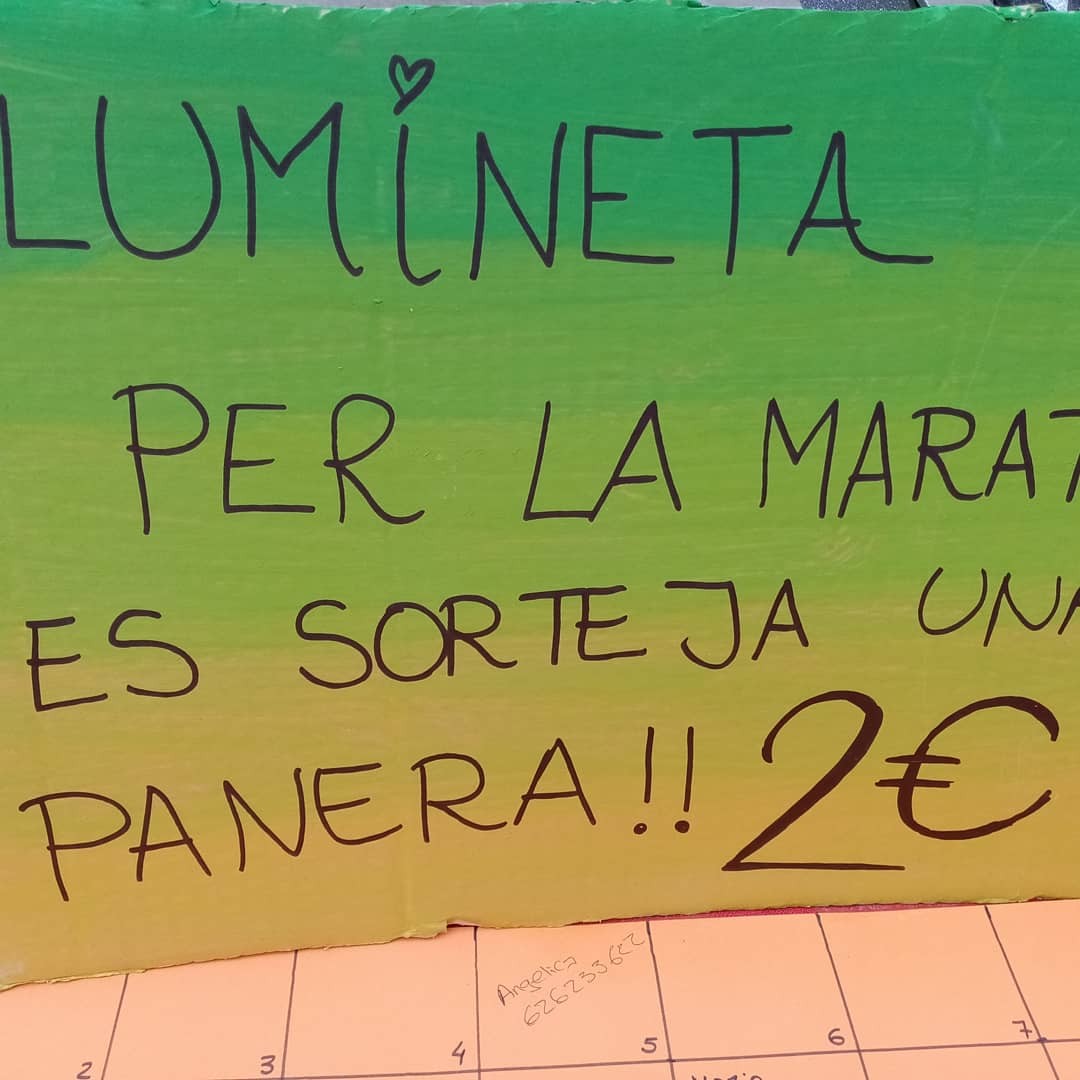 LUMINETA
PER LA MARAT
ES SORTEJA UNA
PANERA!! 2€
Angelica
626233622
2 3 4 5 6 7